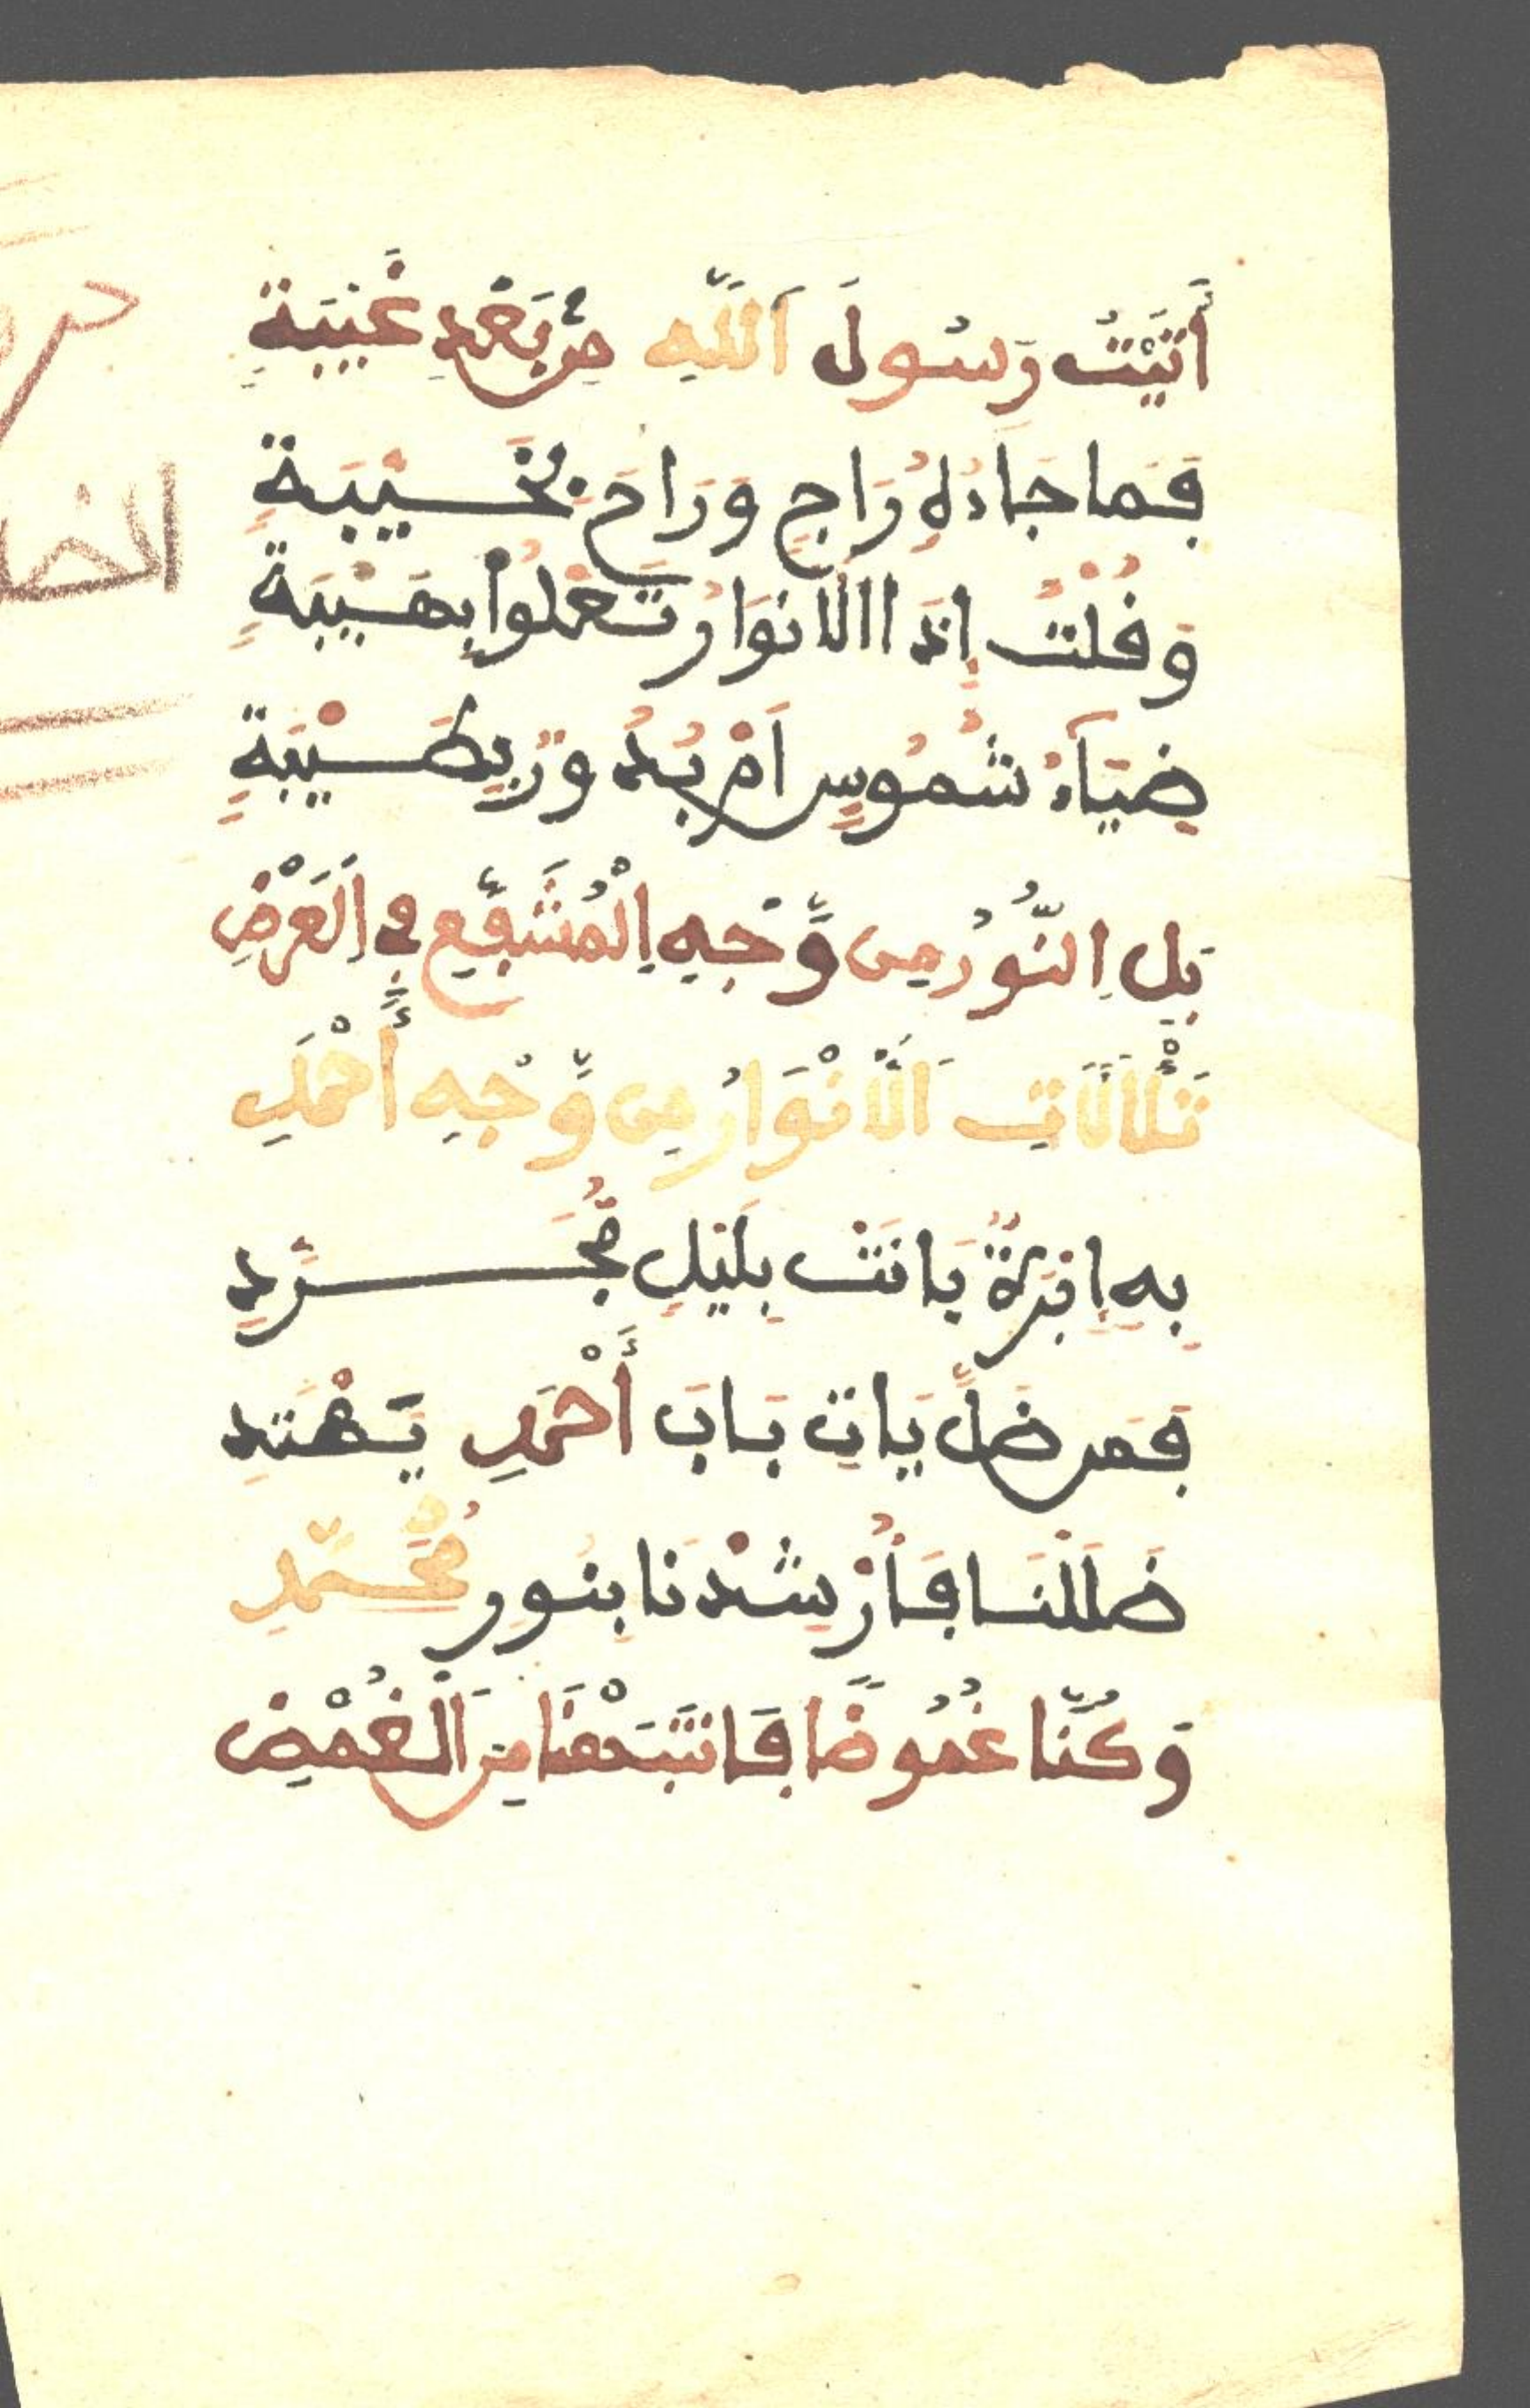 أَتَيْتُ رَسُولَ اَللَّهِ مِنْ بَعْدِ غَيْبَةِ
فَمَا جَاءَهُ رَاجٍ وَرَاحَ بِخَيْبَةِ
وَقُلْتُ إِذَا الَانْوَارُ تَعْلُوا بِهَيْبَةِ
ضِيَآءُ شُمُوسٍ اَمْ بُدُورٍ بِطَيْبَةِ
بَلِ اِلنُّورُ مِن وَّجْهِ اِلْمُشَفَّعِ فِي اِلْعَرْضِ
تَلَأْلَأَتِ اَلَانْوَارُ مِن وَّجْهِ أَحْمَدِ
بِهِ
بَانَتْ بِلَيْلٍ مُّجَرَّدِ
فَمَن ضَلَّ يَاتِ بَابَ أَحْمَدِ يَهْتَدِ
ضَلَلْنَا فَأُرْشِدْنَا بِنُورِ مُحَمَّدِ
وَكُنَّا غُمُوضًا فَانْتَبَهْنَا مِنَ اَلْغُمْضِ